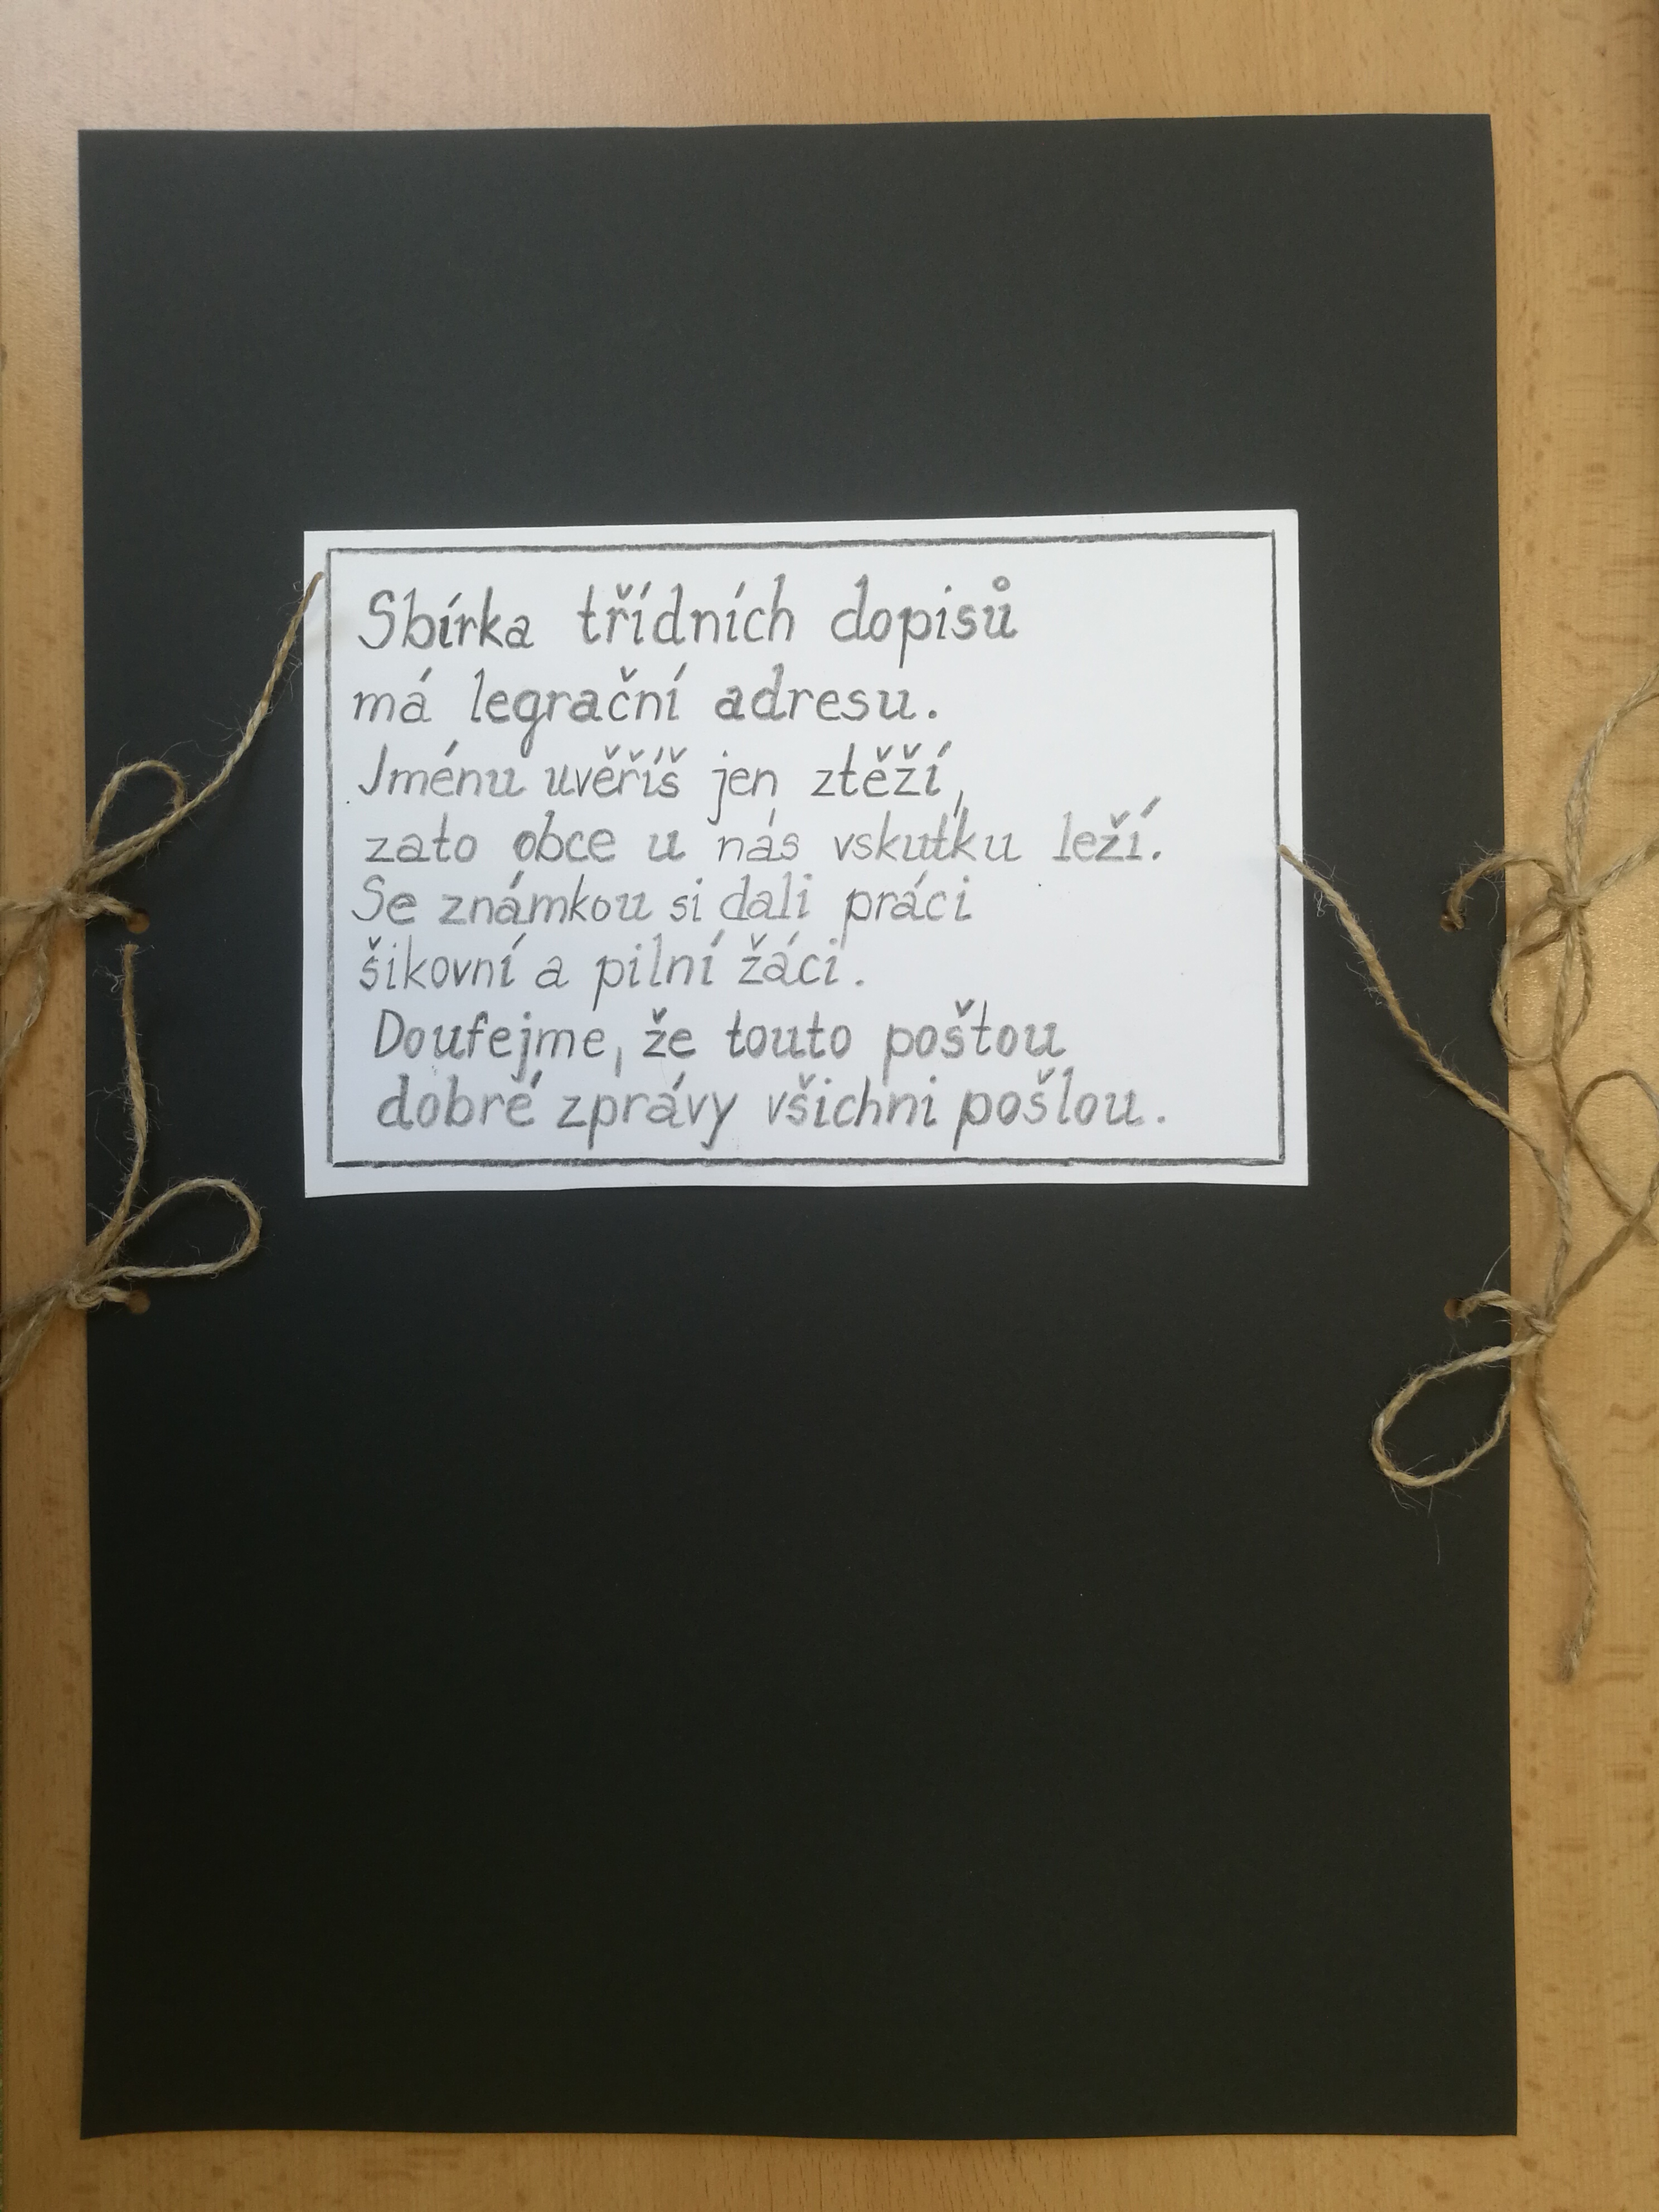 Sbírka třídních dopisů
má legrační adresu.
Jménu uvěříš jen ztěží,
zato obce u nás vskutku leží.
Se známkou si dali práci
šikovní a pilní žáci.
Doufejme, že touto poštou
dobré zprávy všichni pošlou.